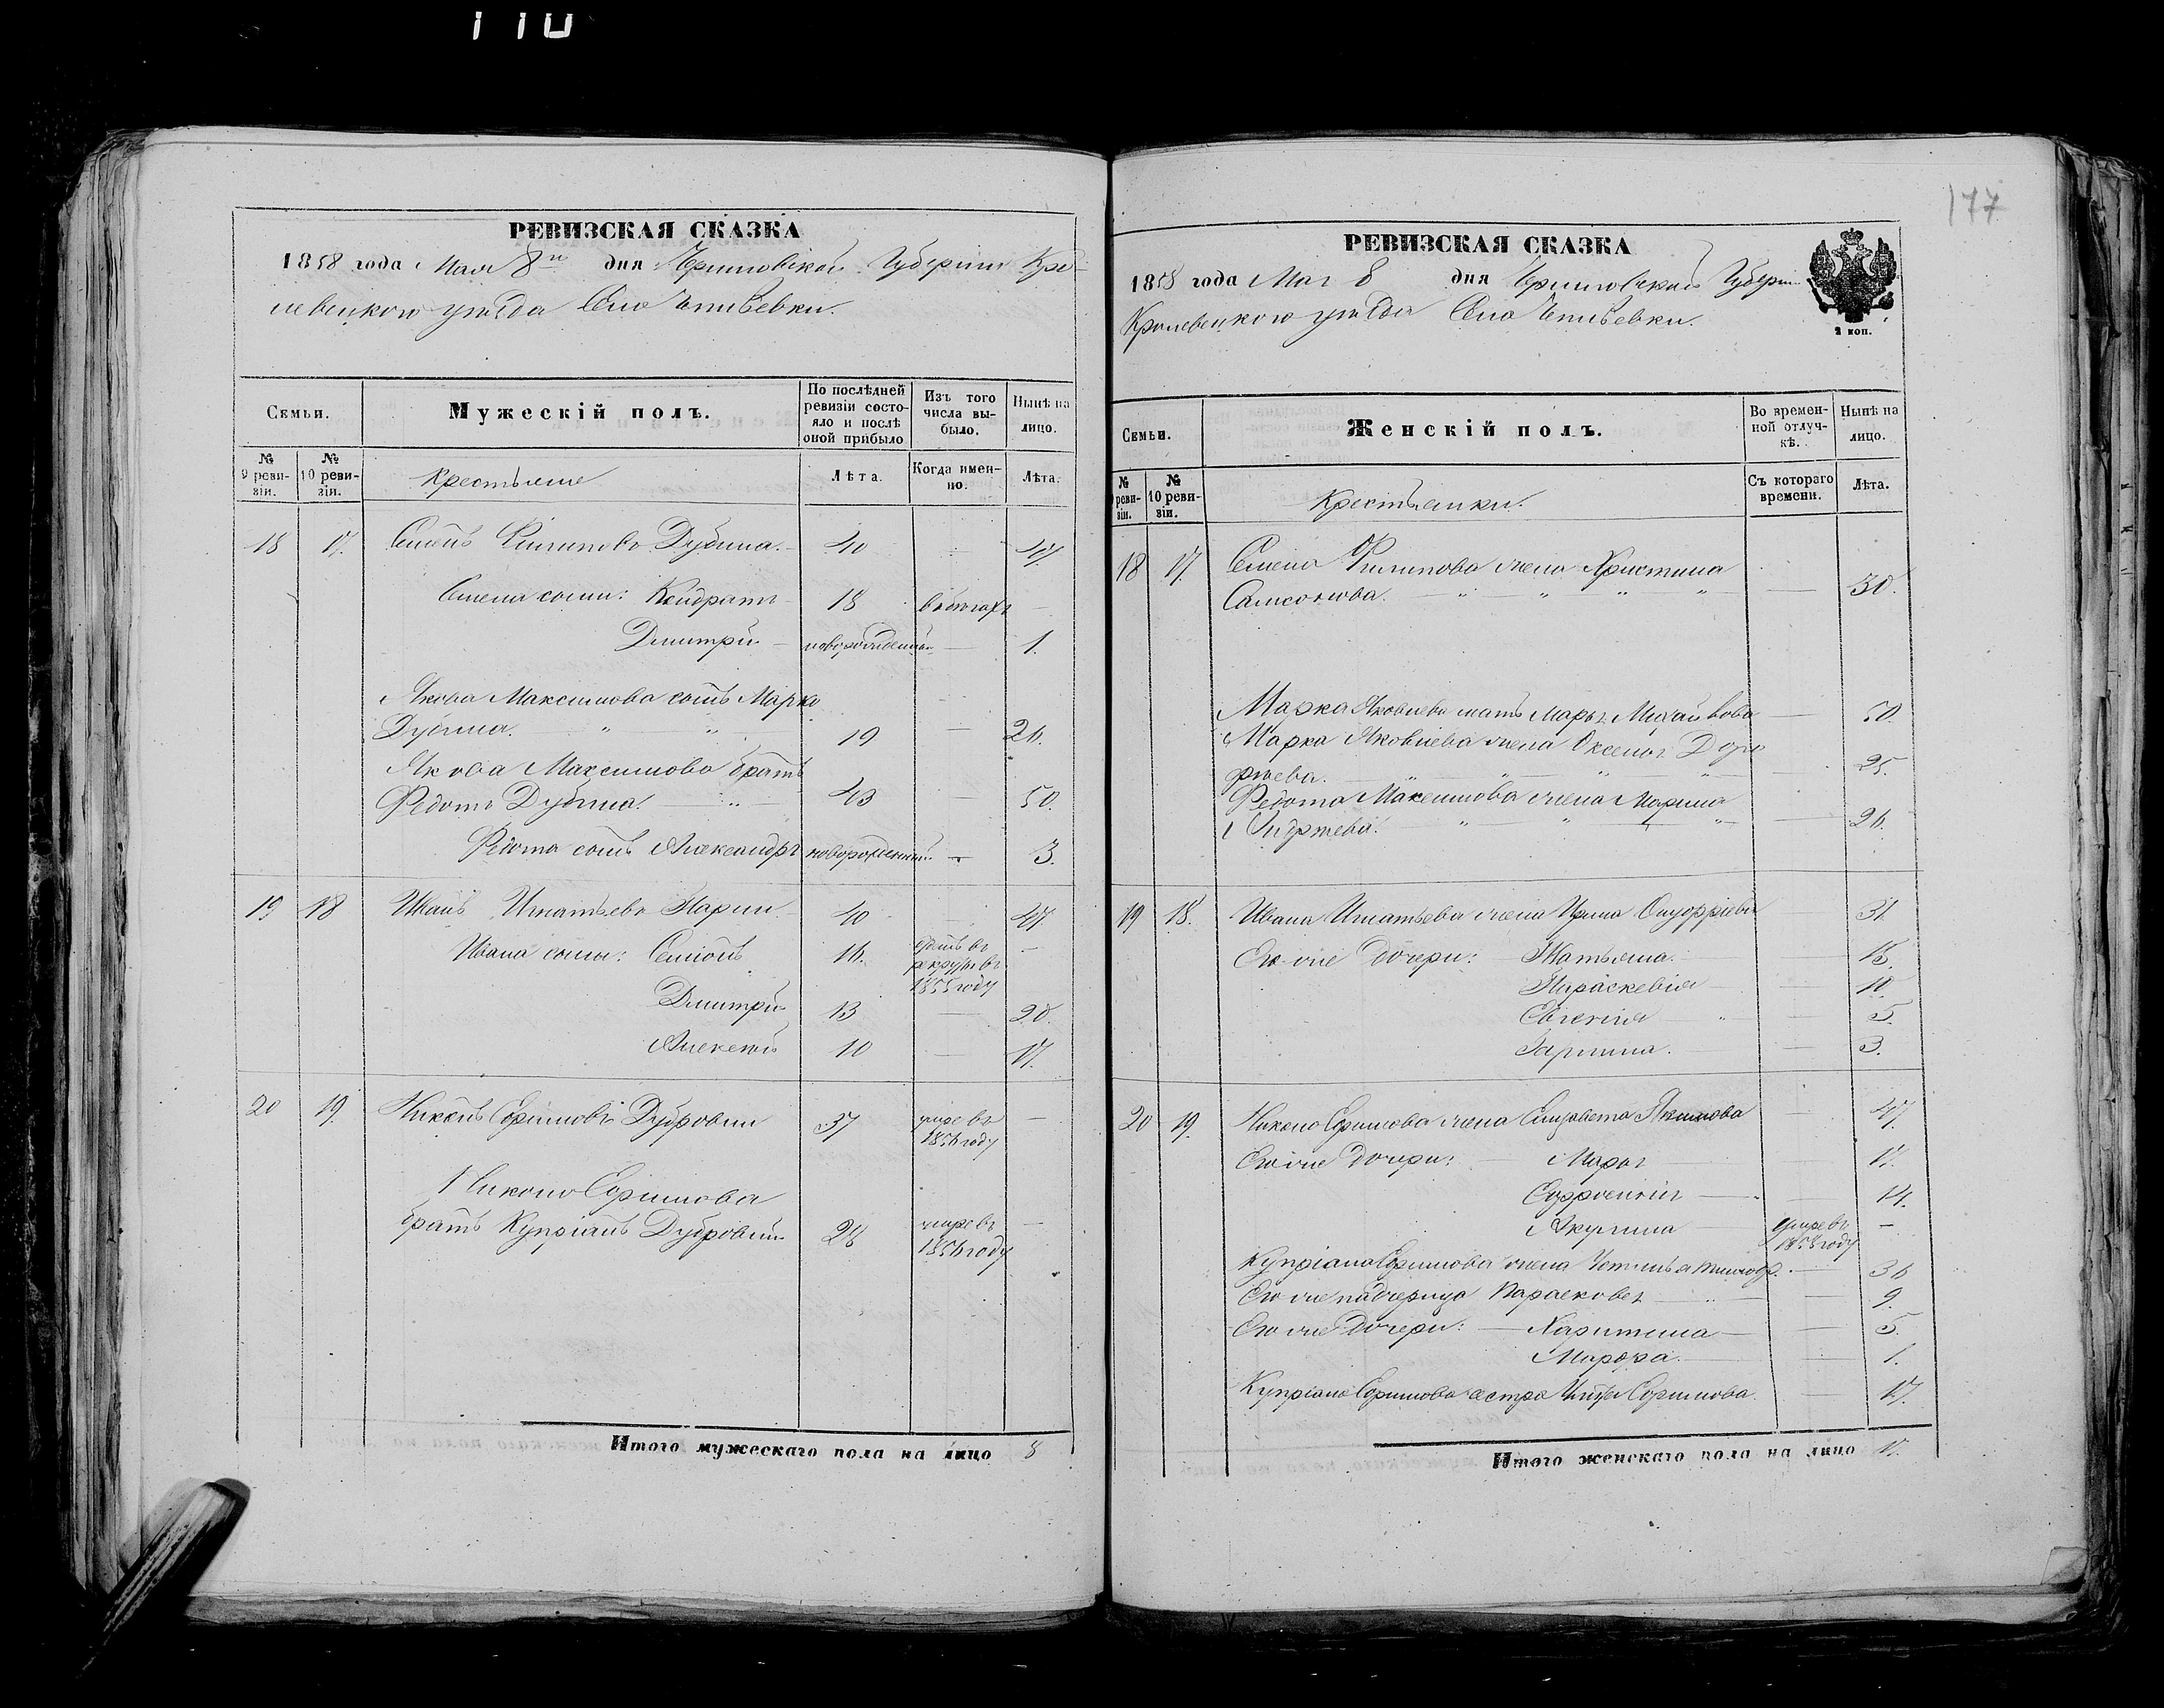 110
РЕВИЗСКАЯ СКАЗКА
1858 года Мая 8го дня Черниговской Губернии Кро-
левецкого уѣзда Село
Семьи.
Мужескій полъ.
По послѣдней ревизіи состо-
яло и послѣ оной прибыло
Изъ того числа вы-
было.
Нынѣ на лицо.
№ 9 реви-
зіи.
№ 10 реви-
зіи.
Крестьяне
Лѣта.
Когда имен-
но.
Лѣта.
18 17. Семенъ Филиповъ Дубина. 40 47.
Семена сыны: Кондратъ 18 въ бѣгахъ —
Дмитрій новорожденный — 1.
Якова Максимова сынъ Марко
Дубина. " " 19 — 26.
Якова Максимова братъ
Федотъ Дубина. 43 — 50.
Федота сынъ Александръ новорожденный — 3.
19 18 Иванъ Игнатьевъ 40 47.
Ивана сыны: Семенъ 16. отданъ въ
рекруты въ
1855 году —
Дмитрій 13 — 20.
Алексѣй 10 — 17.
20 19. Никонъ Ефимовъ Дубровин 37 умре въ
1856 году —
Никона Ефимова
братъ Купріанъ Дубровин 28 умре въ
1856 году —
Итого мужескаго пола на лицо 8
177
РЕВИЗСКАЯ СКАЗКА
1858 года Мая 8 дня Черниговской Губерніи
Кролевецкого уѣзда Село
2 коп.
Семьи.
Женскій полъ.
Во времен-
ной отлуч-
кѣ.
Нынѣ на лицо.
№ 9 реви-
зіи.
№ 10 реви-
зіи.
Крестьянки.
Съ котораго времени.
Лѣта.
18 17. Семена Филипова жена Христина
Самсонова. " " " " — 30.
Марка Яковлева мать Марья Михайлова — 50.
Марка Яковлева жена Оксенья
" " " " — 25.
Федота Максимова жена Марина
Андреева. " " " " — 26.
19 18. Ивана Игнатьева жена Ирина Онуфріева 31.
Его же дочери: Татьяна. — 15.
Параскевія — 10.
Евгенія — 5.
— 3.
20 19. Никона Ефимова жена Елизавета Якимова — 47.
Его же дочери: Марья 17.
Евфросинія — 14.
Акулина — умре въ
1855 году —
Купріана Ефимова жена — 36
Его же падчерица Парасковея — 9.
Его же дочери: — Харитина — 5.
— 1.
Купріана Ефимова сестра Ефимова. 17.
Итого женскаго пола на лицо 17.